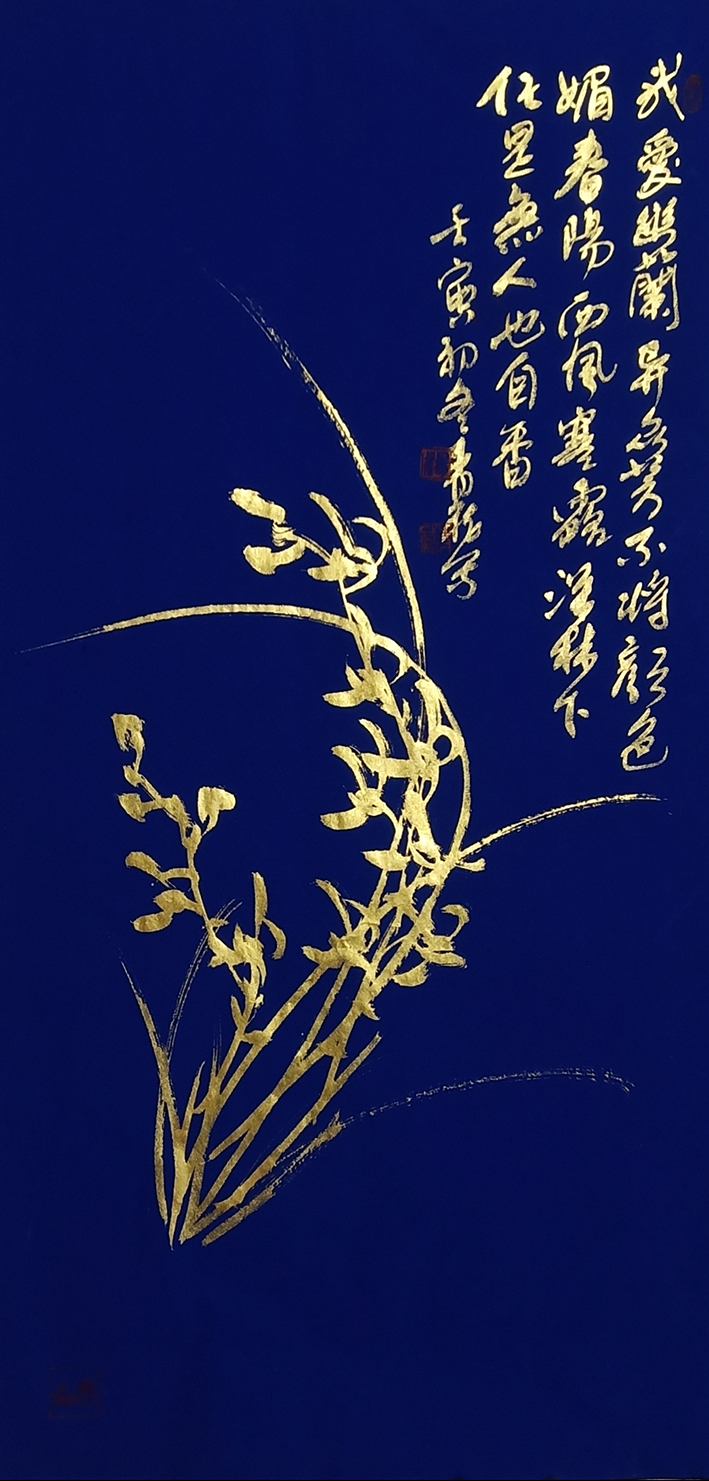 我爱幽蘭异众芳不将颜色
媚春陽西风寒露深林下
任是無人也自香
壬寅初冬青松写